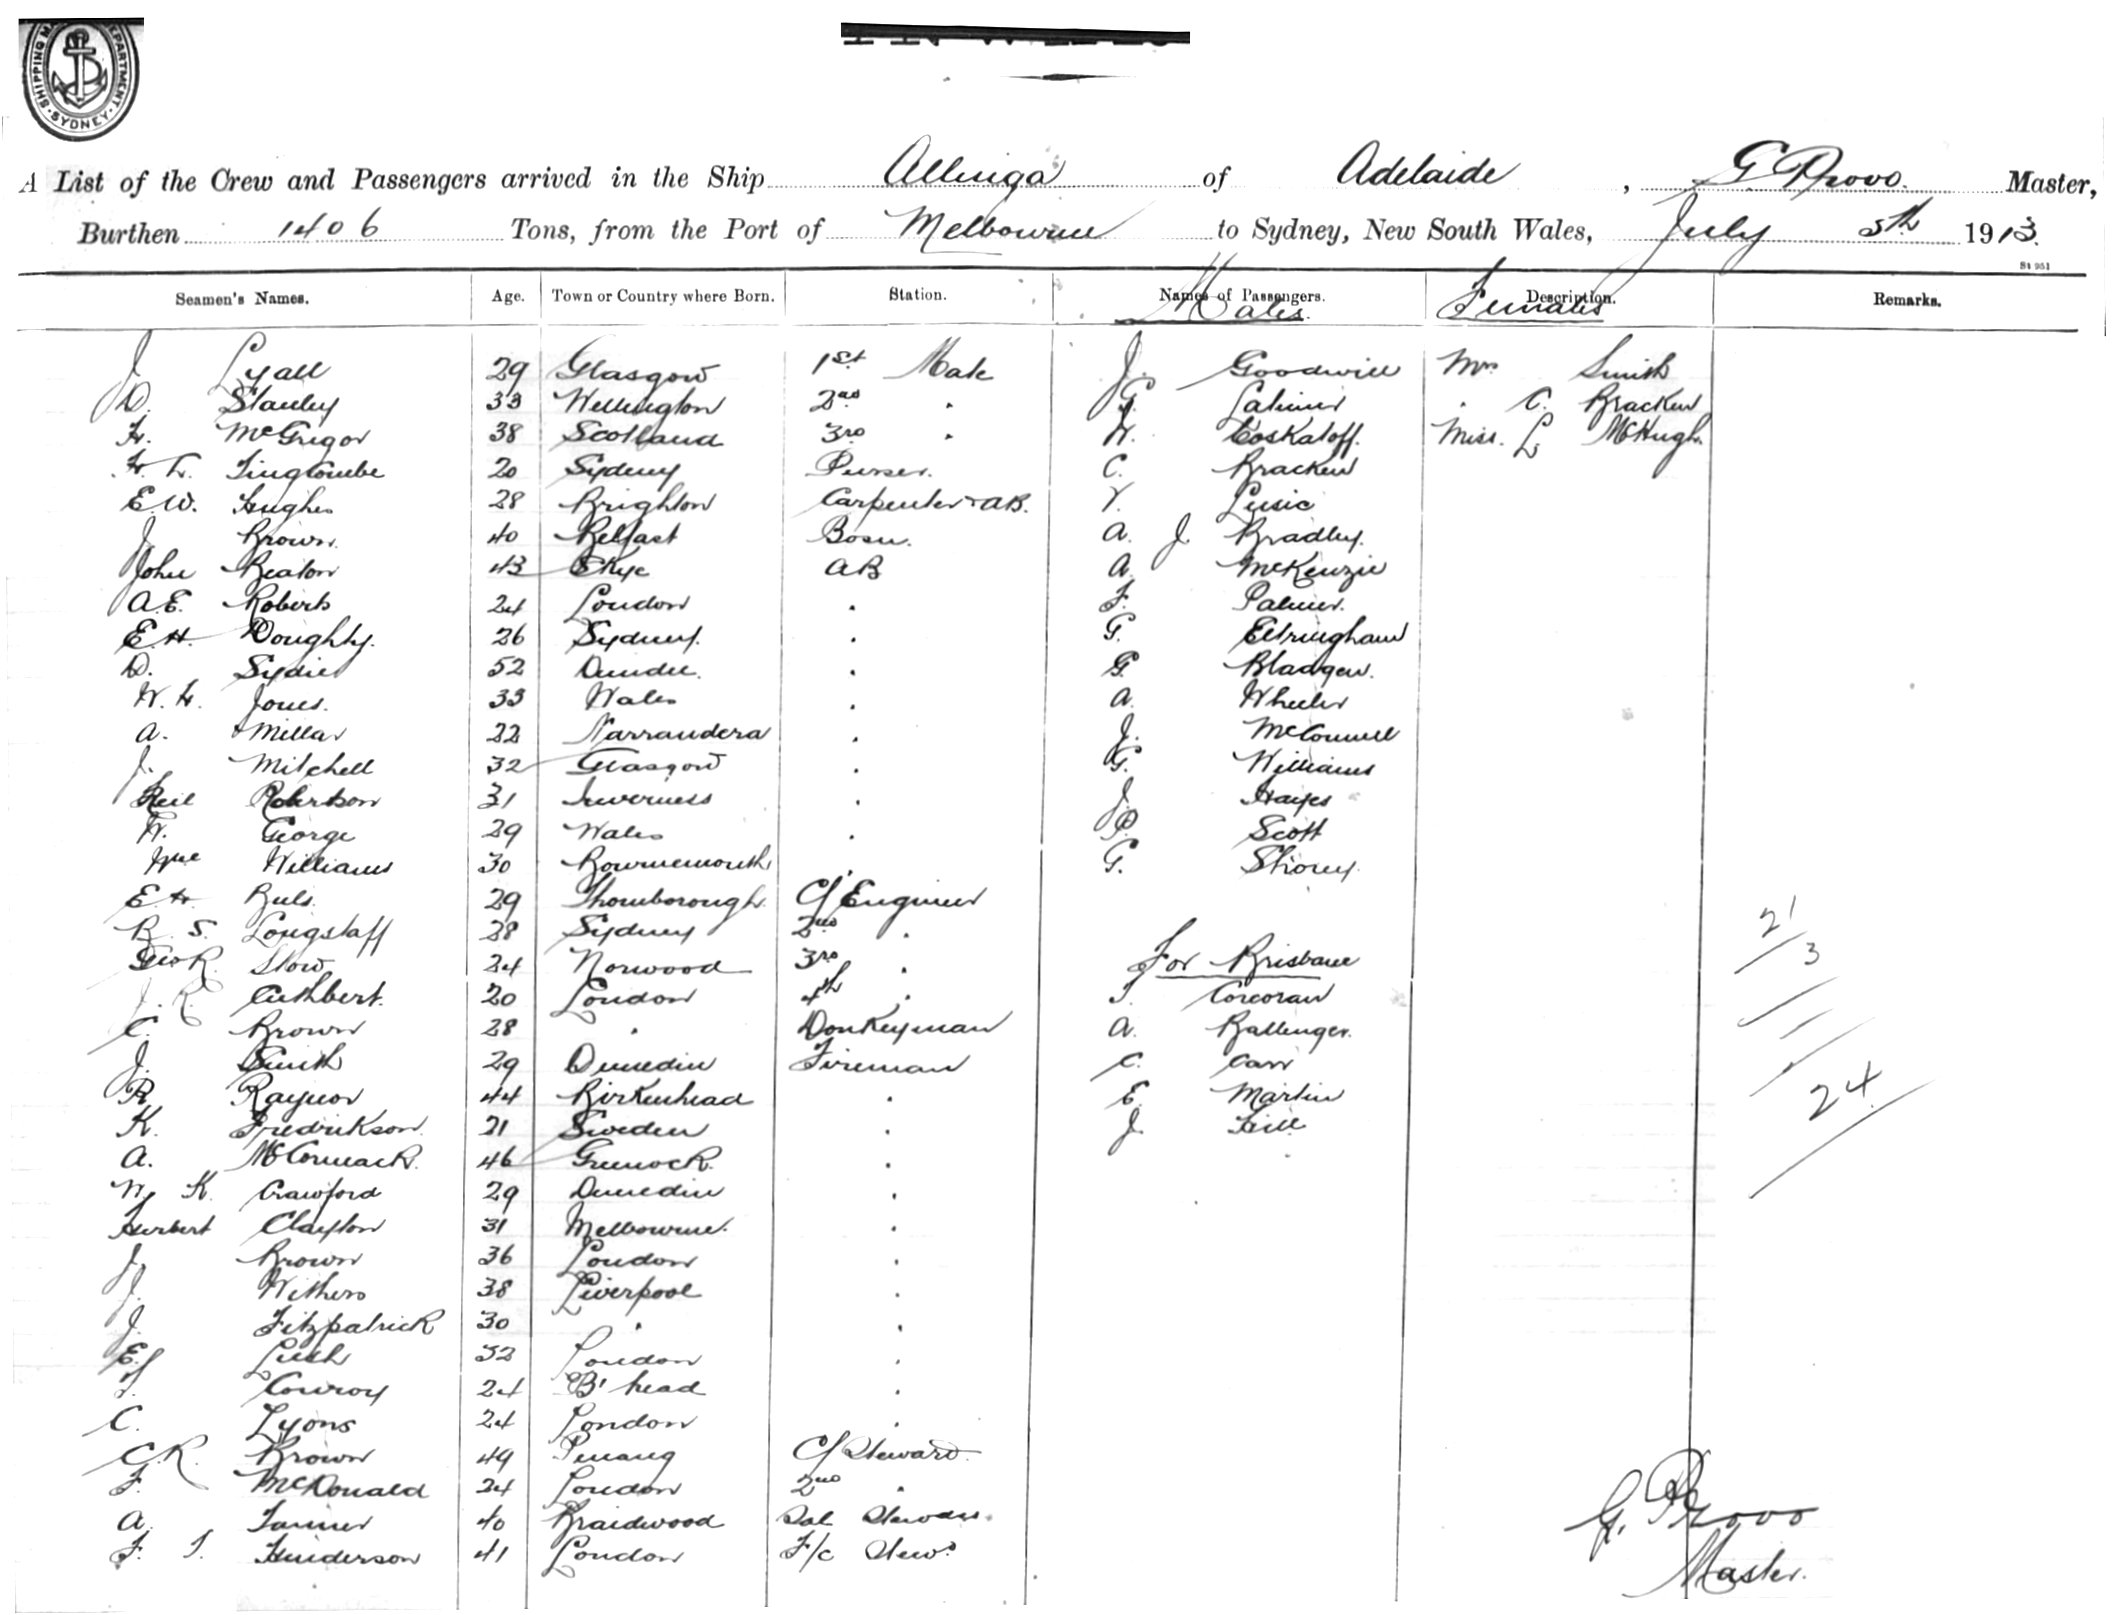 SHIPPING MASTER'S DEPARTMENT · SYDNEY ·
A List of the Crew and Passengers arrived in the Ship Allinga of Adelaide, G. Provo. Master,
Burthen 1406 Tons, from the Port of Melbourne to Sydney, New South Wales, July 5th 1913.
St 951
Seamen's Names. Age. Town or Country where Born. Station. Names of Passengers. Description. Remarks.
Males. Females
J. Lyall 29 Glasgow 1st Mate J. Goodwill Mrs Smith
D. Stanley 33 Wellington 2nd " G. Latimer " C. Bracken
H. McGregor 38 Scotland 3rd " W. Coskatoff. Miss. L McHugh.
H. L. Tinglombe 20 Sydney Purser. C. Bracken
E. W. Hughes 28 Brighton Carpenter & AB. V. Lusic
J Brown. 40 Belfast Bosn. A. J. Bradley.
John Beaton 43 Skye AB A. McKenzie
A. E. Roberts 24 London " F. Palmer.
E. H. Doughty. 26 Sydney. " G. Eltringham
D. Sydie 52 Dundee. " G. Bladgen.
W. H. Jones. 33 Wales " A. Wheeler
A. Millar 22 Narrandera " J. McConnell
J. Mitchell 32 Glasgow " G. Williams
Neil Robertson 31 Inverness " J. Hayes
W. George 29 Wales " P. Scott
Wm Williams 30 Bournemouth " G. Storey.
E. H. 29 Thornborough. C/ Engineer
R. S. Longstaff 28 Sydney 2nd " 21
Geo R. Slow 24 Norwood 3rd " For Brisbane 3
J. R. Cuthbert. 20 London 4th " T. Corcoran
C. Brown 28 " Donkeyman A. Ballenger.
J. Smith 29 Dunedin Fireman C. Carr
R. Raynor 44 Birkenhead " E. Martin 24
K. Fredrikson. 21 Sweden " J. Hill
A. McCormack. 46 Greenock. "
W. K. Crawford 29 Dunedin "
Herbert Clayton 31 Melbourne. "
J. Brown 36 London "
J. Withers 38 Liverpool "
J. Fitzpatrick 30 " "
E. Lush 32 London "
T. Conroy 24 B'head "
C. Lyons 24 London "
C. R. Brown 49 Penang C/ Steward.
F. McDonald 24 London 2nd "
A. Tanner 40 Braidwood Sal Stewdss.
F. T. Henderson 41 London F/c Stewd
G. Provo
Master.